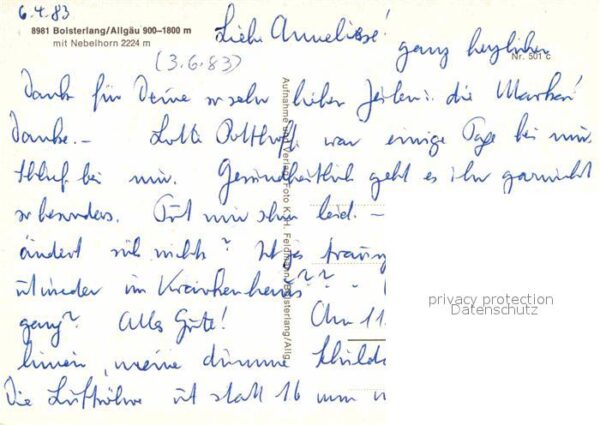 6.4.83
8981 Bolsterlang/Allgäu 900–1800 m
mit Nebelhorn 2224 m
Nr. 501 c
(3.6.83)
Liebe Anneliese! ganz herzlichen
Dank für Deine so sehr lieben Zeilen: die Marken!
Danke.- Lotte Potthoff war einige Tage bei mir.
Schlief bei mir. Gesundheitlich geht es ihr garnicht
so besonders. Tut mir sehr leid. –
ändert sich nicht? Ist es traurig
ist wieder im Krankenhaus?? -
ganz? Alles Gute! Am 11.
hinein, meine dumme Schild
Die Luftröhre ist statt 16 mm
Aufnahme und Verlag Foto K. H. Feldmann, Bolsterlang/Allg.
privacy protection
Datenschutz